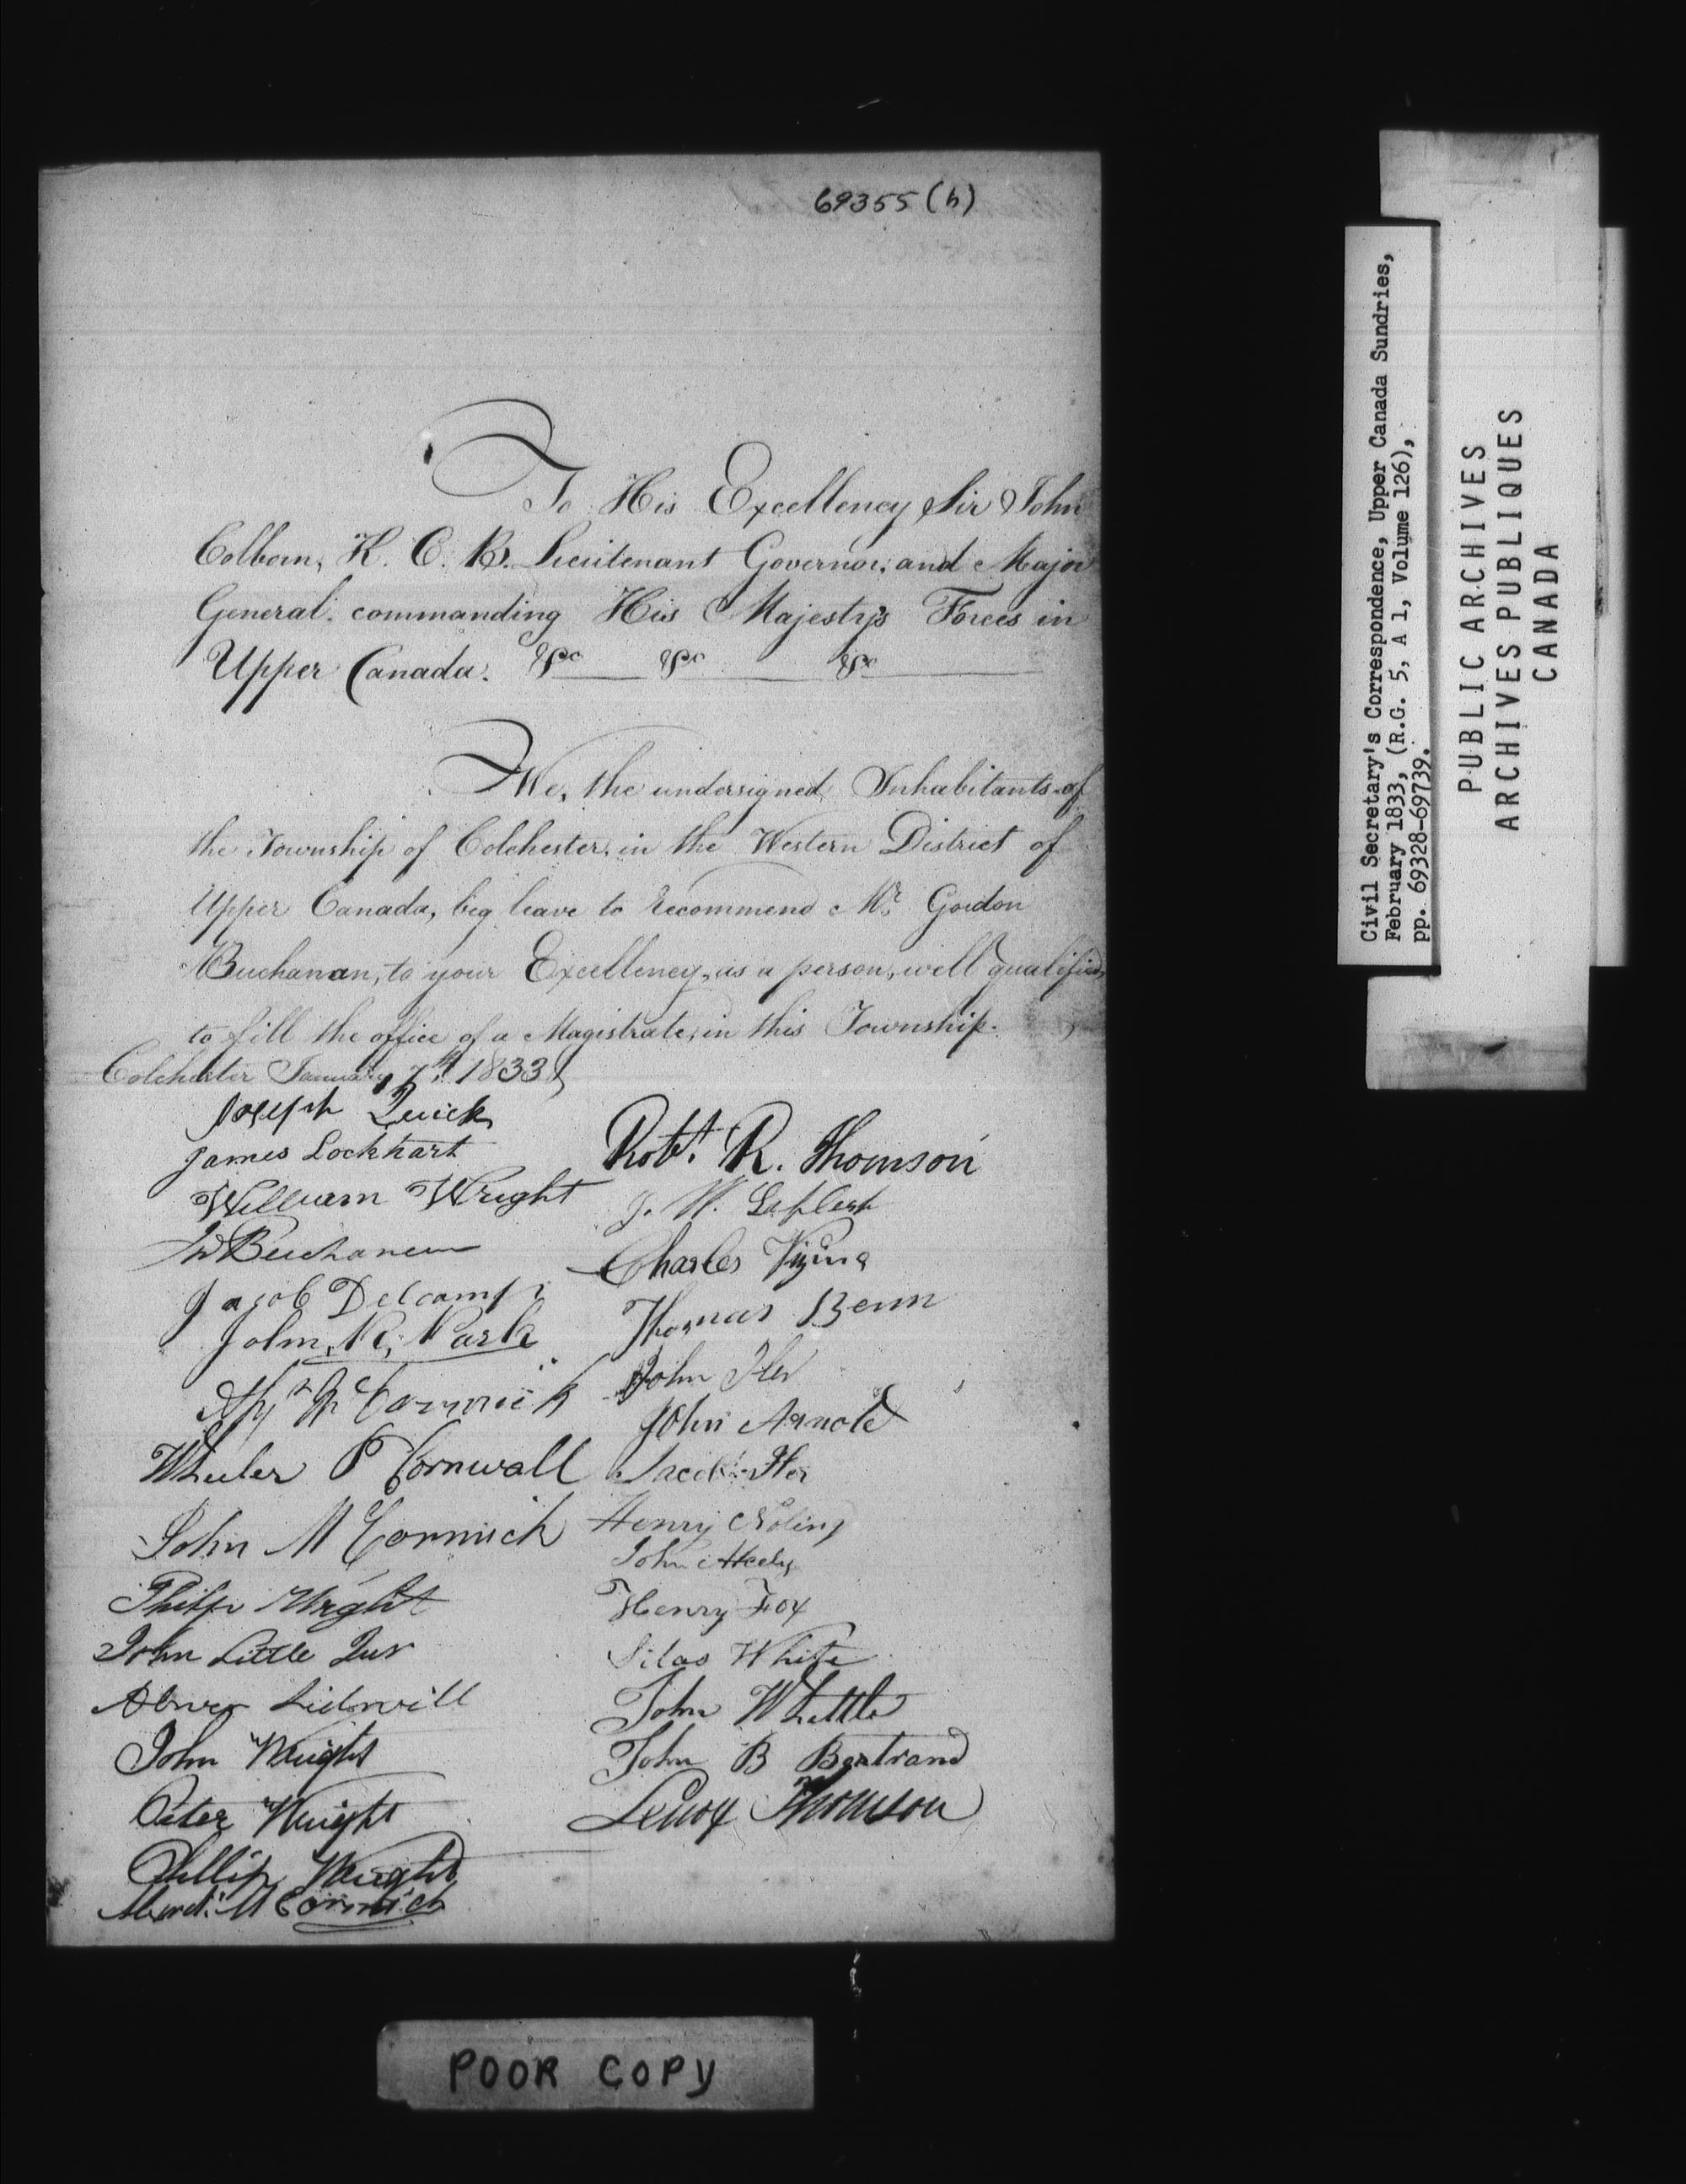 69355 (h)
To His Excellency Sir John
Colborn, K. C. B. Lieutenant Governor, and Major
General commanding His Majesty's Forces in
Upper Canada. &c &c &c
We, the undersigned Inhabitants of
the Township of Colchester, in the Western District of
Upper Canada, beg leave to recommend Mr. Gordon
Buchanan, to your Excellency, as a person, well qualified
to fill the office of a Magistrate, in this Township.
Colchester January 7th 1833
Joseph Quick
James Lockhart
William Wright
Buchanan
Jacob Delcamp
John R, Park
Cormick
Wheeler P Cornwall
John M Cormick
Philip Wright
John Little Jur
Abner
John Wright
Peter Wright
Phillip Wright
M Cormick
Robt. R. Thomson
J. W.
Charles
Thomas Benn
John Iler
John Arnold
Jacob Iler
Henry
John
Henry Fox
Silas White
John Whittle
John B Bertrand
Leroy Thomson
POOR COPY
Civil Secretary's Correspondence, Upper Canada Sundries,
February 1833, (R.G. 5, A 1, Volume 126),
pp. 69328-69739.
PUBLIC ARCHIVES
ARCHIVES PUBLIQUES
CANADA